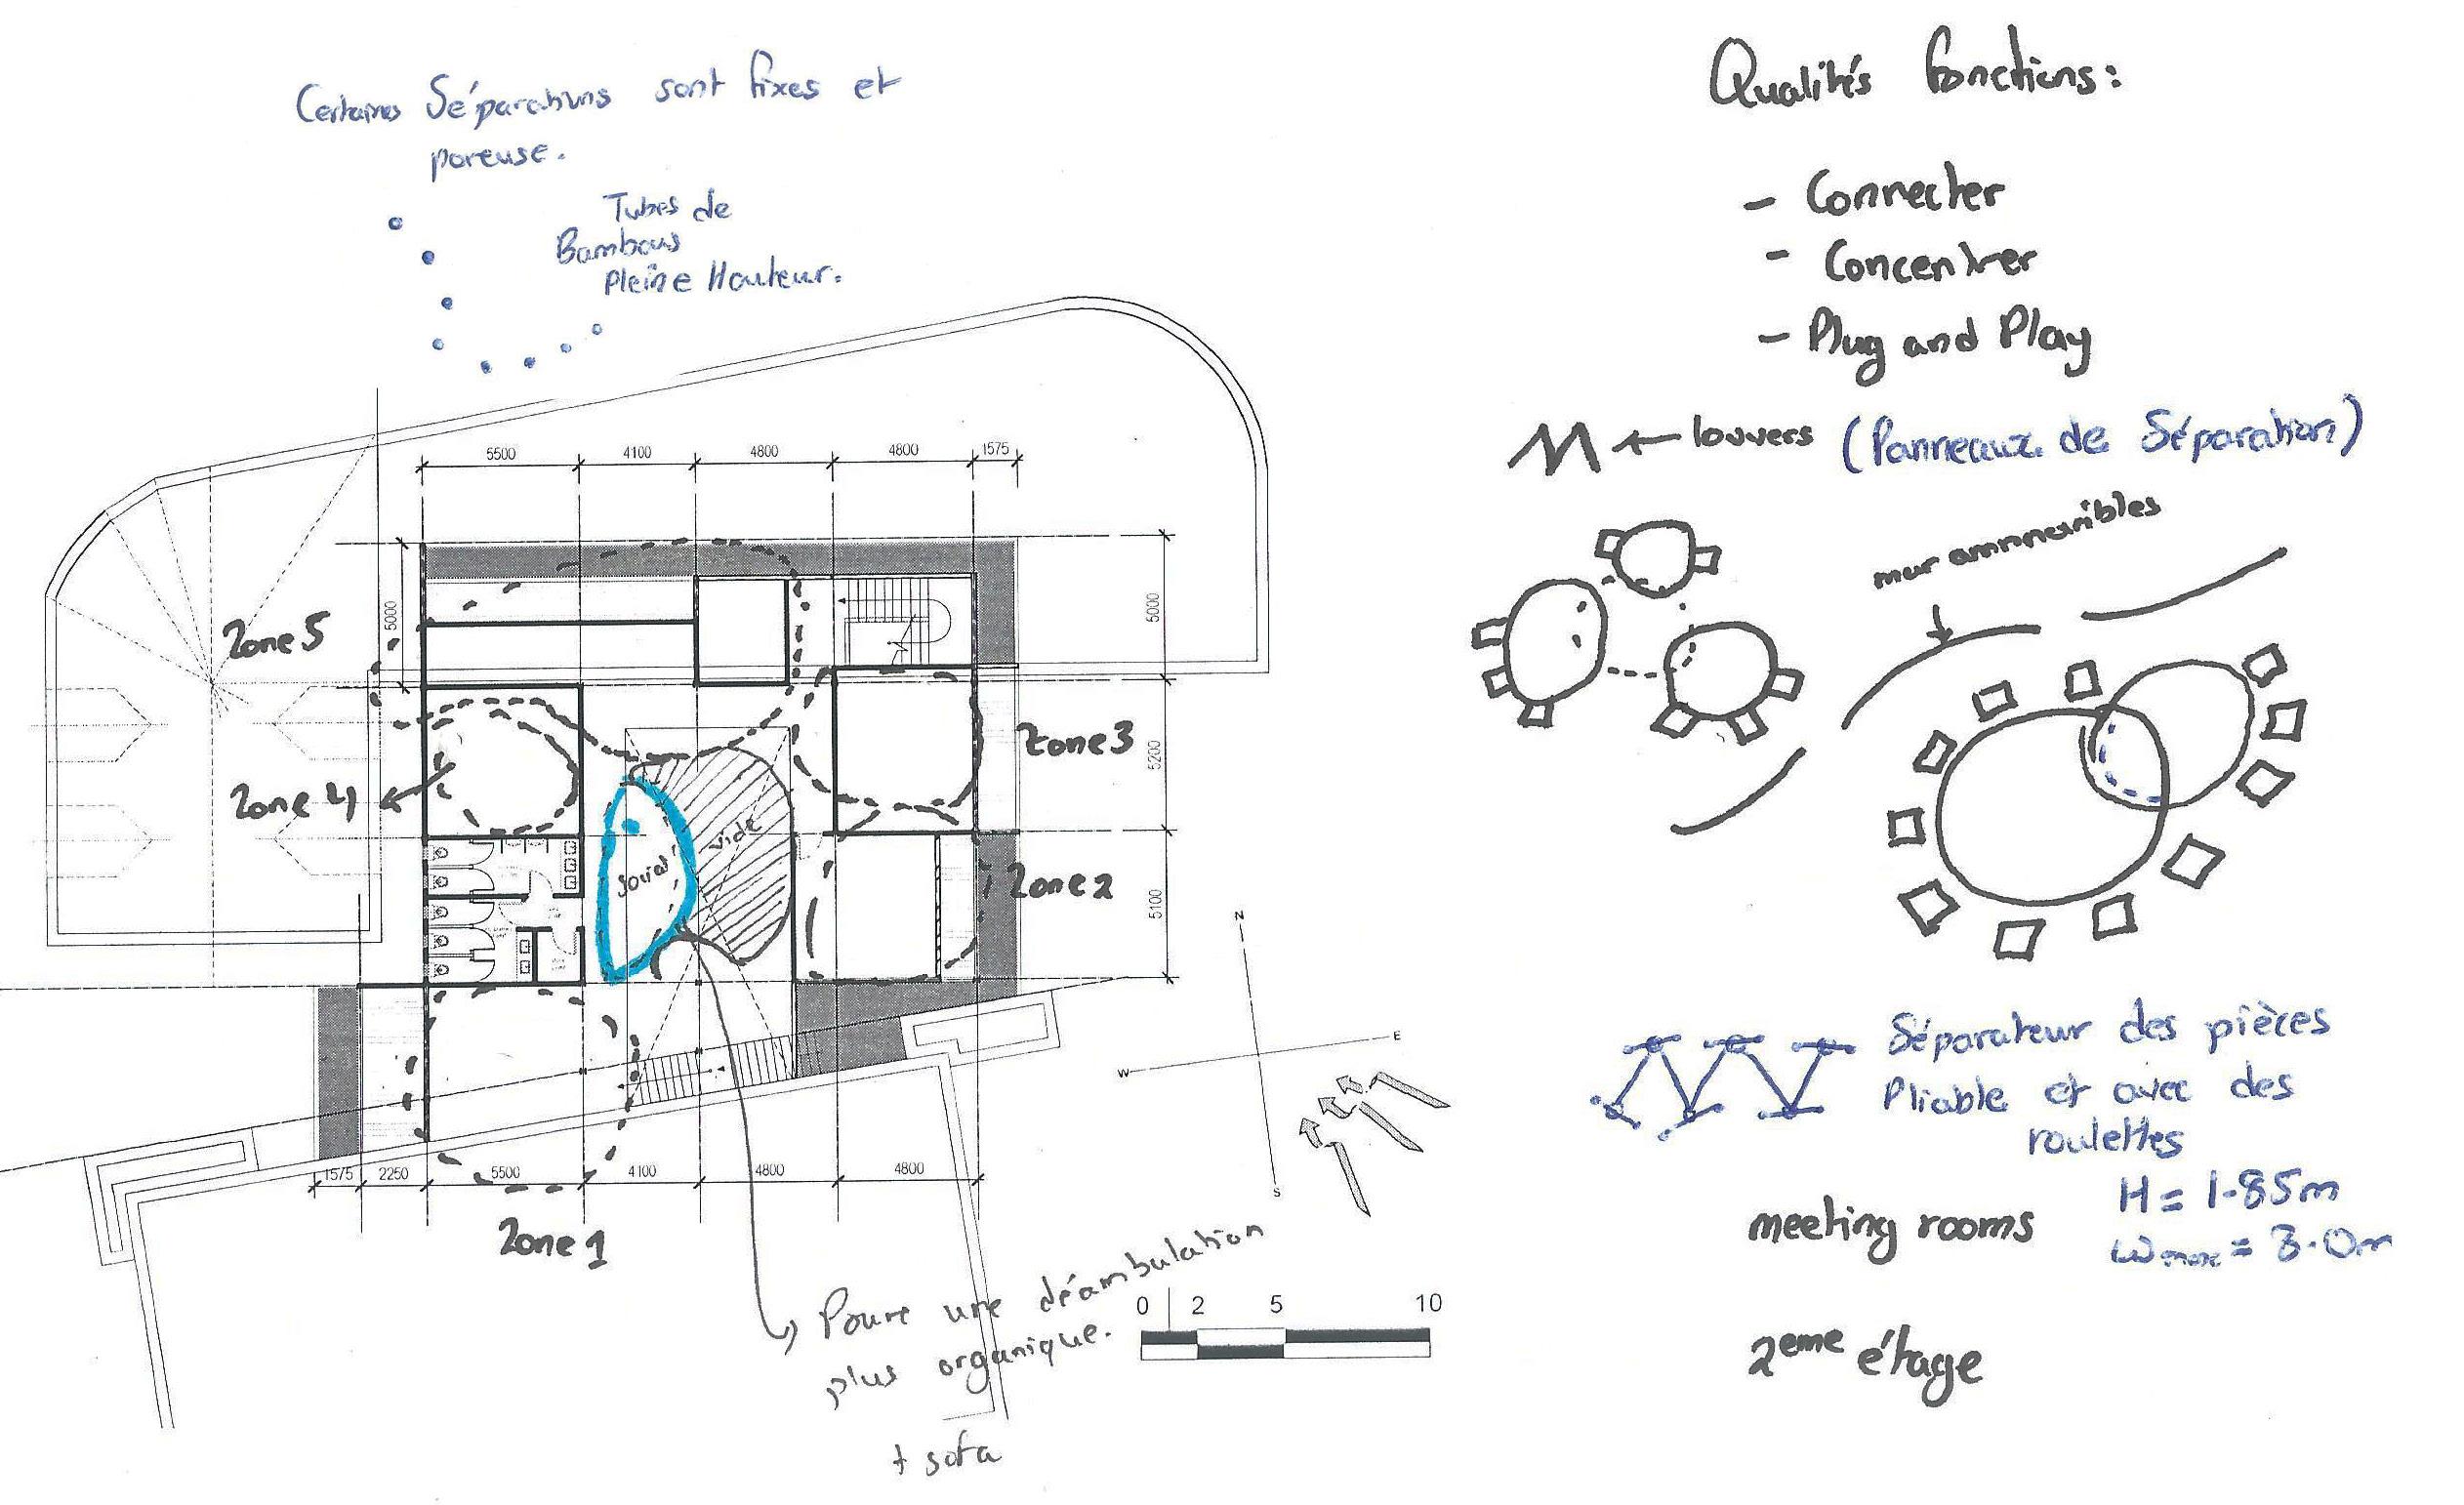 Certaines Séparations sont fixes et
poreuse.
Tubes de
Bambous
Pleine Hauteur.
5500 4100 4800 4800 1575
5000
5000
5200
5100
Zone 5
Zone 4
Zone 3
Zone 2
Zone 1
Social
vide
1575 2250 5500 4100 4800 4800
N
E
W
S
Poure une déambulation
plus organique.
+ sofa
0 2 5 10
Qualités fonctions:
- Connecter
- Concentrer
- Plug and Play
louvers (Panneaux de Séparation)
mur
Séparateur des pièces
Pliable et avec des
roulettes
H = 1.85m
meeting rooms
Wmax = 3.0m
2eme étage